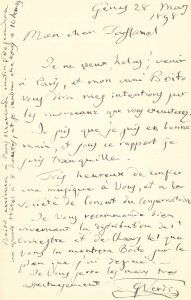 Gênes 28 Mars
1898
Mon cher Taffanel
Je ne peux helas! venir
à Paris, et mon ami Boito
Vous dira mes intentions sur
les morceaux que vous executerez.
Je sais que je suis en bonne
main, et sous ce rapport je
suis tranquille.
Très heureux de confier
ma musique à Vous, et à la
Société de Concert du Conservatoire
Je Vous recommande bien
vivement la distribution de l'
Orchestre et des Choeurs tel que
Vous la montrera Boito par le
plan que j'ai désigné
Je Vous serre les mains très
affectueusement
G. Verdi